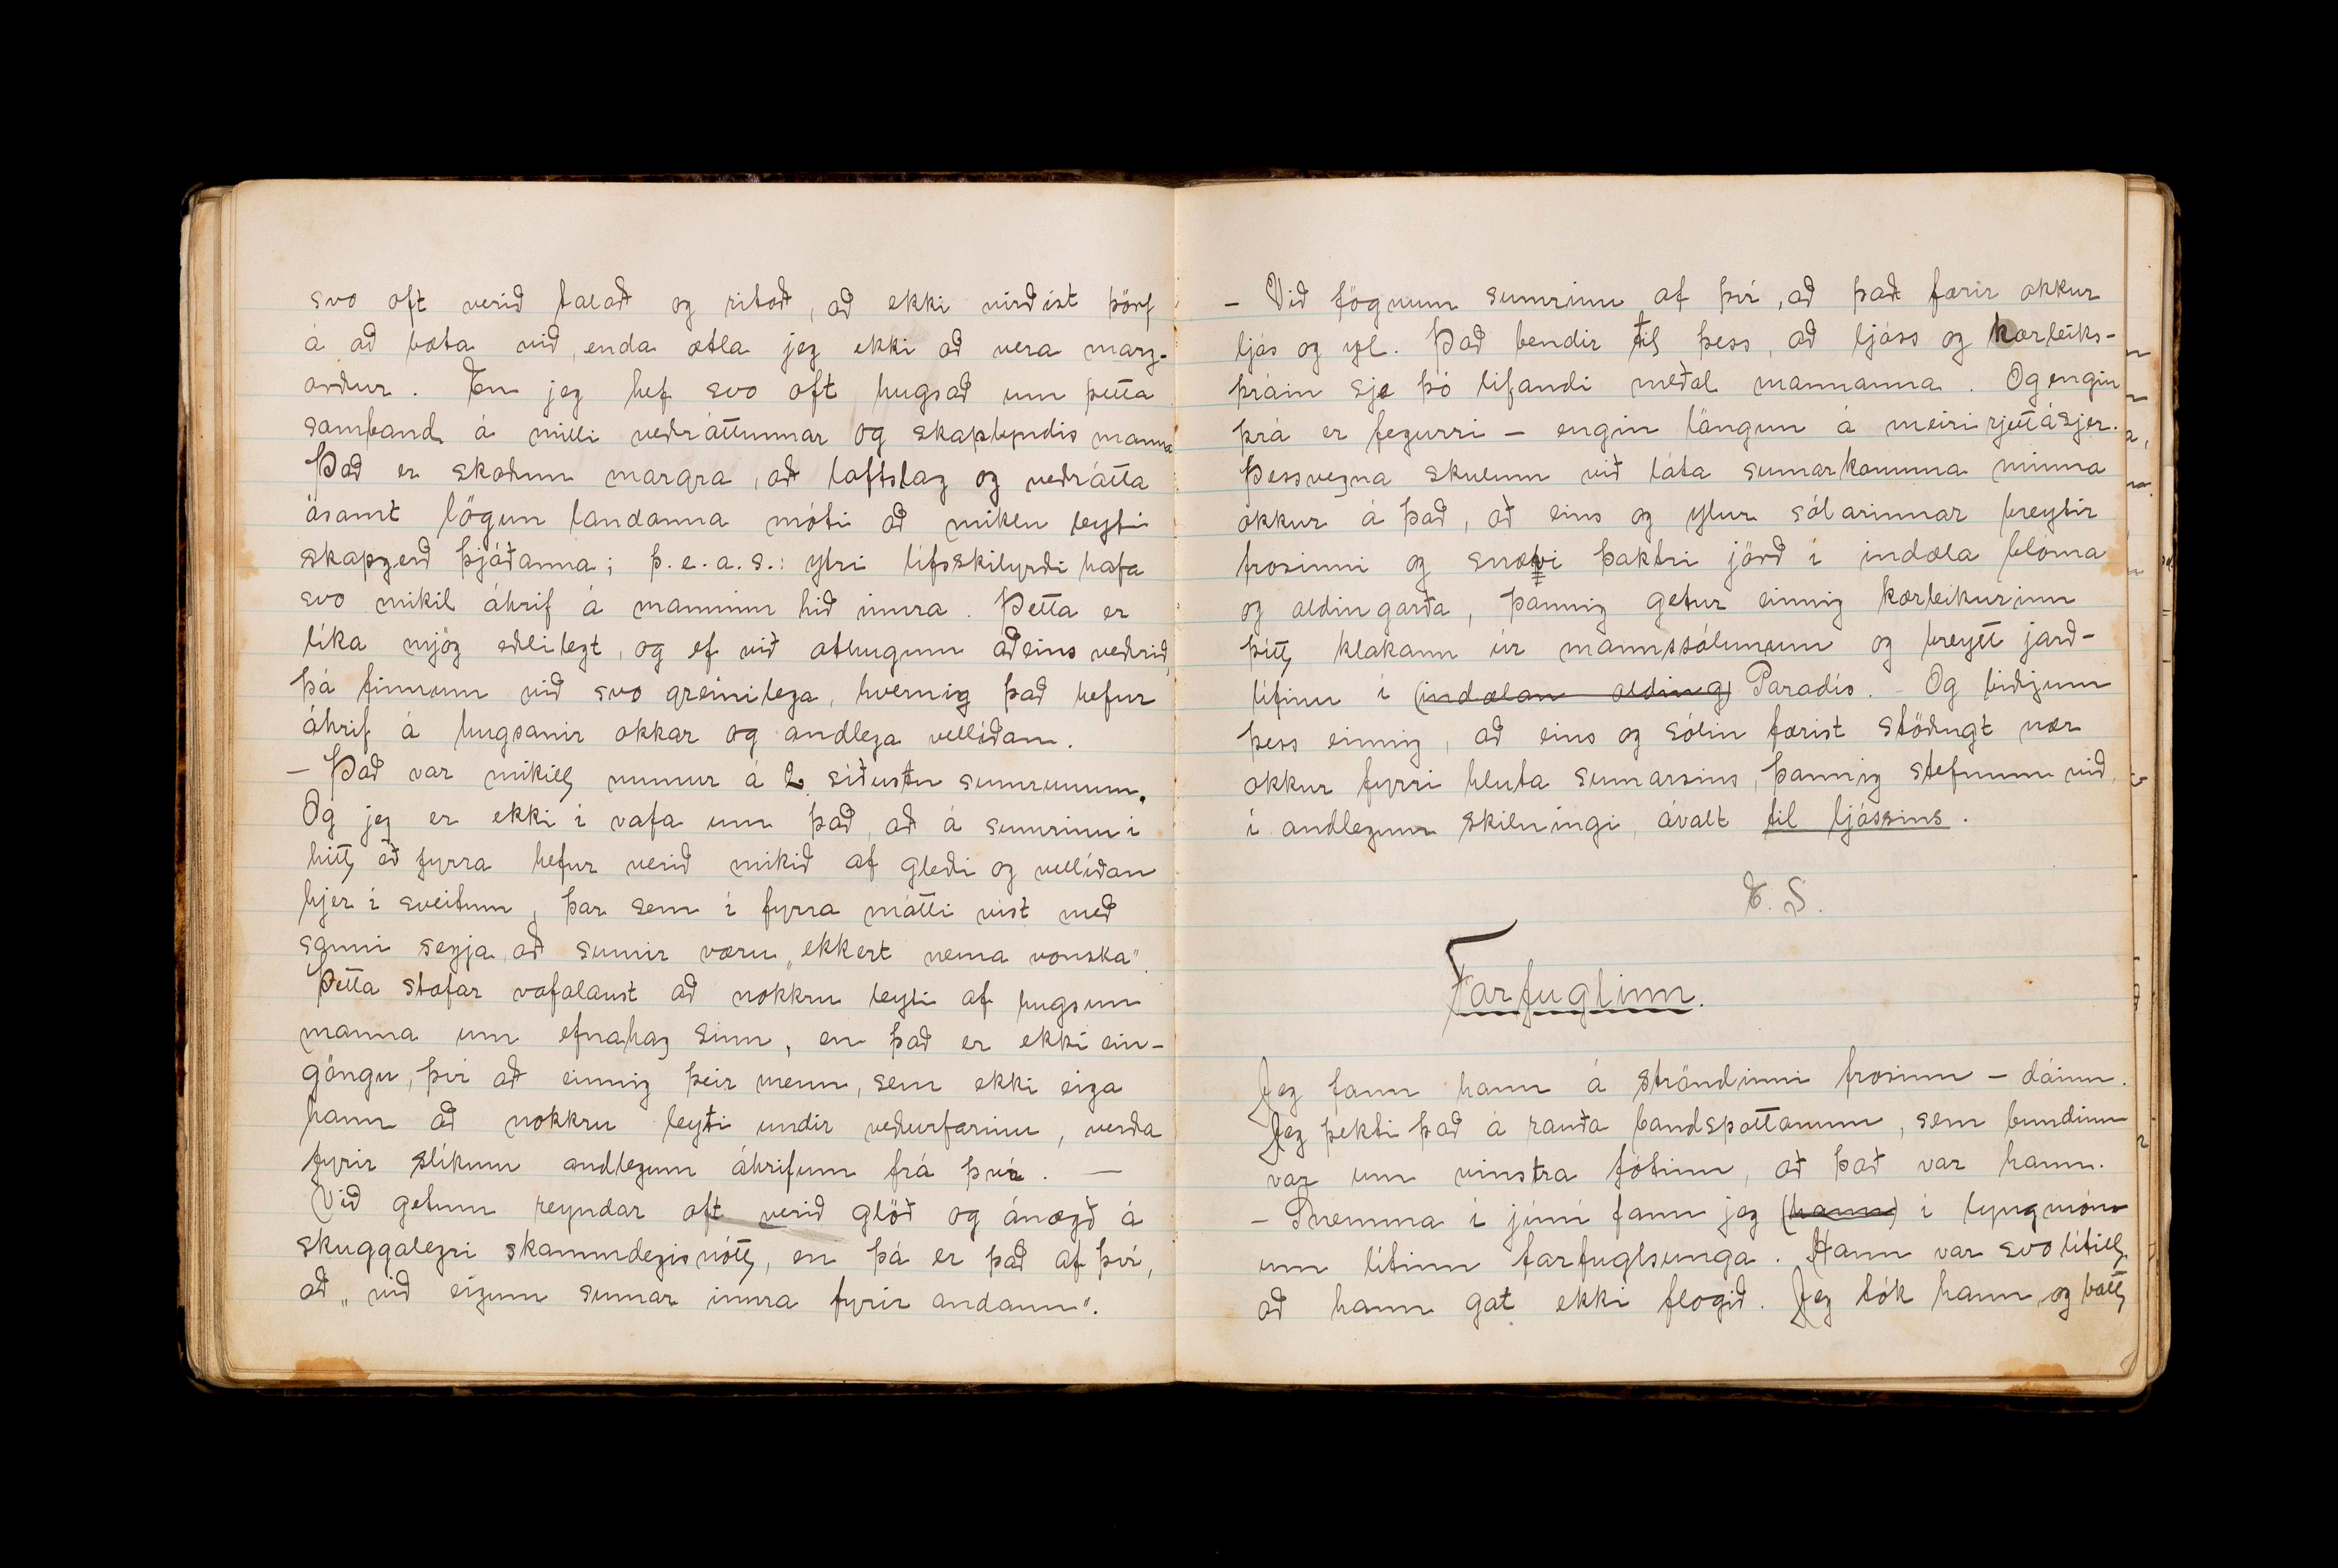 svo oft verið talað og ritað, að ekki virðist þörf
á að bæta við, enda ætla jeg ekki að vera marg-
orður. En jeg hef svo oft hugsað um þetta
samband á milli veðráttunnar og skaplyndis manna
Það er skoðun margra, að loftslag og veðrátta
ásamt lögun landanna móti að miklu leyti
skapgerð þjóðanna; þ.e.a.s.: ytri lífsskilyrði hafa
svo mikil áhrif á manninn hið innra. Þetta er
líka mjög eðlilegt, og ef við athugum aðeins veðrið,
þá finnum við svo greinilega, hvernig það hefur
áhrif á hugsanir okkar og andlega vellíðan.
– Það var mikill munur á 2 síðustu sumrunum.
Og jeg er ekki í vafa um það, að á sumrinu í
hitt eð fyrra hefur verið mikið af gleði og vellíðan
hjer í sveitum, þar sem í fyrra mátti víst með
sanni segja, að sumir væru „ekkert nema vonska“.
Þetta stafar vafalaust að nokkru leyti af hugsun
manna um efnahag sinn, en það er ekki ein-
göngu, því að einnig þeir menn, sem ekki eiga
hann að nokkru leyti undir veðurfarinu, verða
fyrir slíkum andlegum áhrifum frá því. —
Við getum reyndar oft verið glöð og ánægð á
skuggalegri skammdegisnótt, en þá er það af því,
að „við eigum sumar innra fyrir andann“.
– Við fögnum sumrinu af því, að það færir okkur
ljós og yl. Það bendir til þess, að ljóss og kærleiks-
þráin sje þó lifandi meðal mannanna. Og engin
þrá er fegurri – engin löngun á meiri rjett á sjer.
Þessvegna skulum við láta sumarkomuna minna
okkur á það, að eins og ylur sólarinnar breytir
frosinni og snævi þaktri jörð í indæla blóma
og aldingarða, þannig getur einnig kærleikurinn
þítt klakann úr mannssálunum og breytt jarð-
lífinu í (indælan alding) Paradís. – Og biðjum
þess einnig, að eins og sólin færist stöðugt nær
okkur fyrri hluta sumarsins, þannig stefnum við,
í andlegum skilningi, ávalt til ljóssins.
E. S.
Farfuglinn.
Jeg fann hann á ströndinni frosinn – dáinn.
Jeg þekti það á rauða bandspottanum, sem bundinn
var um vinstra fótinn, að það var hann.
– Snemma í júní fann jeg (hann) í lyngmón-
um lítinn farfuglsunga. Hann var svo lítill,
að hann gat ekki flogið. Jeg tók hann og batt